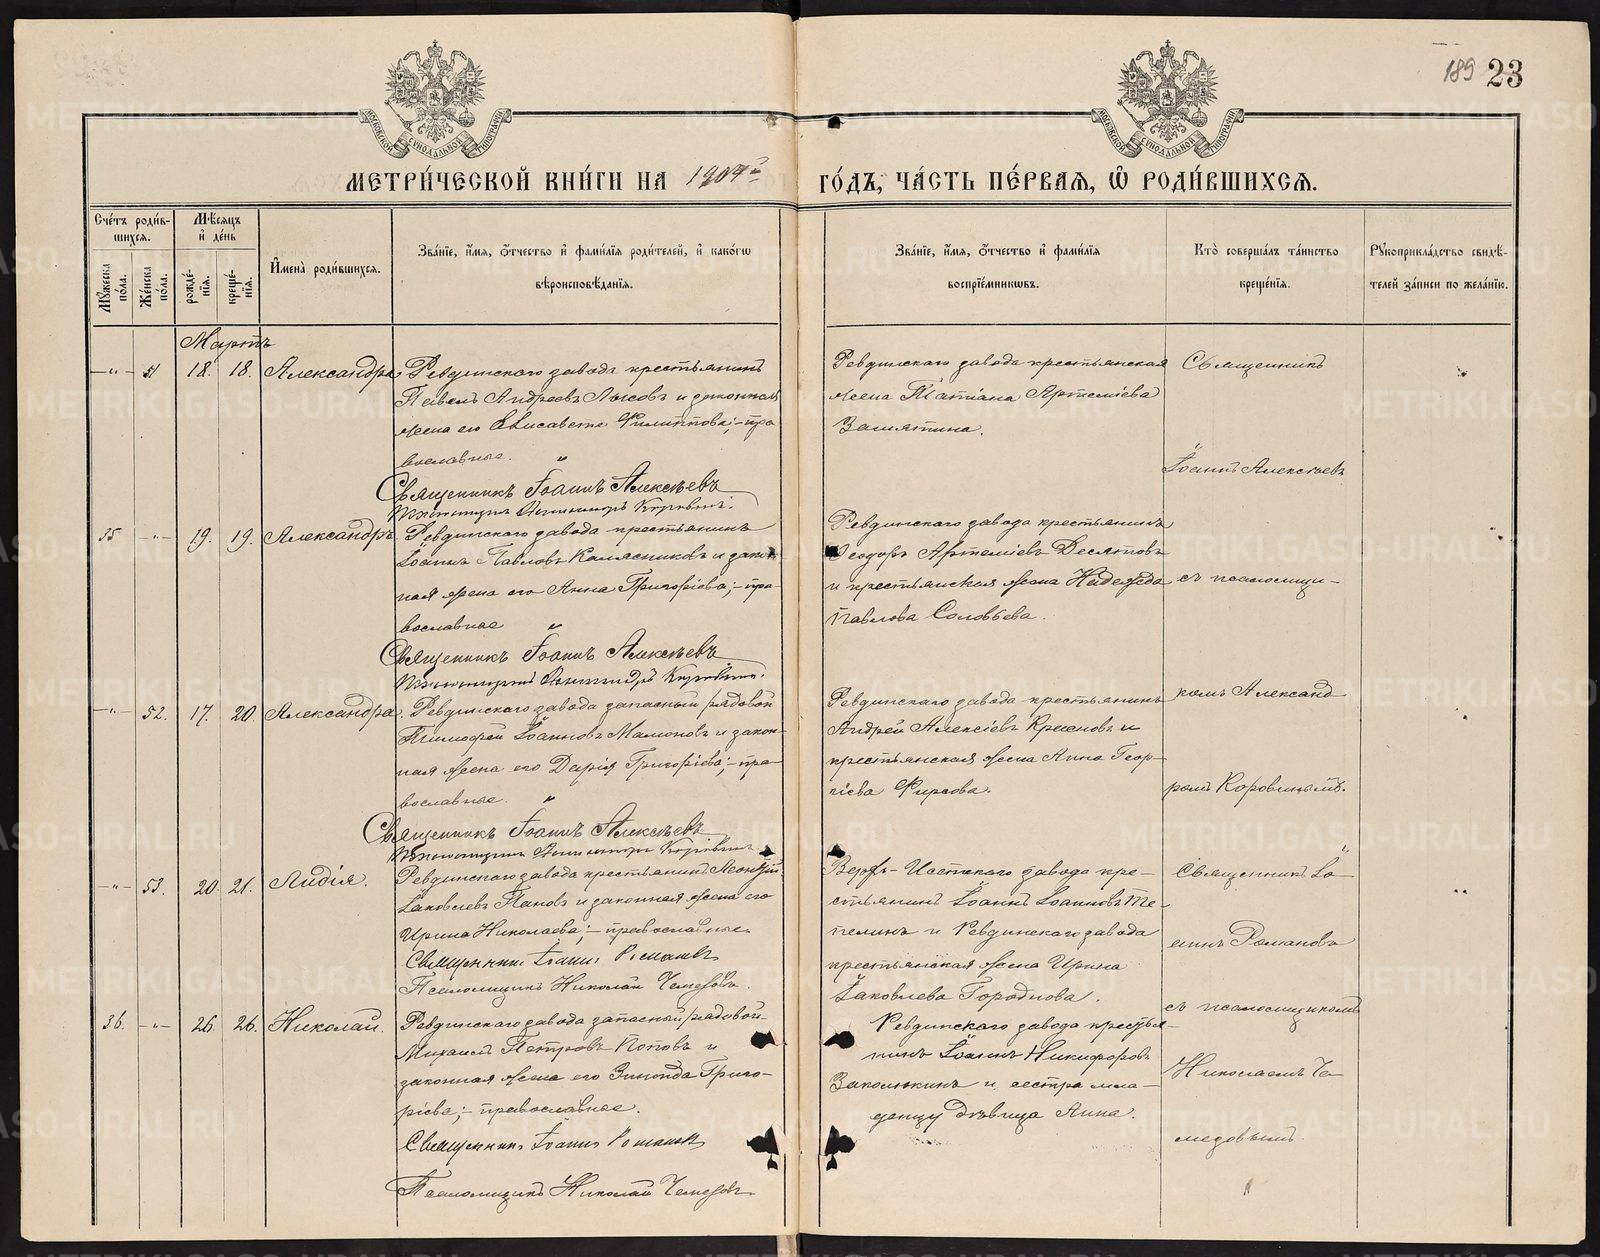 189 23
МЕТРИ́ЧЕСКОЙ КНИ́ГИ НА 1904 г. ГО́ДЪ, ЧА́СТЬ ПЕ́РВАЯ, Ѿ РОДИ́ВШИХСЯ.
Сче́тъ роди́в-
шихся.
Мѣ́сяцъ
и҆ де́нь
Мꙋ́жеска
по́ла.
Же́нска
по́ла.
рожде́-
нїя.
креще́-
нїя.
И҆мена̀ роди́вшихся.
Зва́нїе, и҆́мя, ѻ҆́тчество и҆ фами́лїя роди́телей, и҆ како́гѡ
вѣроисповѣ́данїя.
Зва́нїе, и҆́мя, ѻ҆́тчество и҆ фами́лїя
воспрїе́мникѡвъ.
Кто̀ соверша́лъ та́инство
креще́нїя.
Рꙋкоприкла́дство свидѣ́-
телей за́писи по жела́нїю.
Мартъ
—"— 51 18. 18. Александра
Ревдинскаго завода крестьянинъ
Павелъ Андреевъ Лысовъ и законная
жена его Елисавета Филиппова; – пра
вославные.
Священникъ Іоаннъ Алексѣевъ
Псаломщикъ Александръ Коровинъ.
Ревдинскаго завода крестьянская
жена Татіана Артеміева
Замятина.
Священникъ
Іоаннъ Алексѣевъ
35 —"— 19. 19. Александръ
Ревдинскаго завода крестьянинъ
Іоаннъ Павловъ Колясниковъ и закон
ная жена его Анна Григоріева; – пра
вославные
Священникъ Іоаннъ Алексѣевъ
Псаломщикъ Александръ Коровинъ.
Ревдинскаго завода крестьянинъ
Ѳеодоръ Артеміевъ Десятовъ
и крестьянская жена Надежда
Павлова Соловьева.
съ псаломщи-
—"— 52. 17. 20. Александра.
Ревдинскаго завода запасный рядовой
Тимофей Іоанновъ Мамоновъ и закон-
ная жена его Дарія Григоріева; – пра-
вославные.
Священникъ Іоаннъ Алексѣевъ
Псаломщикъ Александръ Коровинъ
Ревдинскаго завода крестьянинъ
Андрей Алексіевъ и
крестьянская жена Анна Геор-
гіева Фирсова.
комъ Александ
ромъ Коровинымъ.
—"— 53. 20. 21. Лидія.
Ревдинскаго завода крестьянинъ Леонтій
Іаковлевъ Пановъ и законная жена его
Ирина Николаева; – православные.
Священникъ Іоаннъ Романовъ
Псаломщикъ Николай Чемезовъ.
Верхъ-Исетскаго завода кре-
стьянинъ Іоаннъ Іоанновъ Те-
пелинъ и Ревдинскаго завода
крестьянская жена Ирина
Іаковлева Городнова.
Священникъ Іо-
аннъ Романовъ
съ псаломщикомъ
36. —"— 26. 26. Николай.
Ревдинскаго завода запасный рядовой
Михаилъ Петровъ Поповъ и
законная жена его Зинаида Григо-
ріева; – православные.
Священникъ Іоаннъ Романовъ
Псаломщикъ Николай Чемезовъ
Ревдинскаго завода крестья-
нинъ Іоаннъ Никифоровъ
Заколюкинъ и сестра мла-
денцу дѣвица Анна.
Николаемъ Че-
мезовымъ.